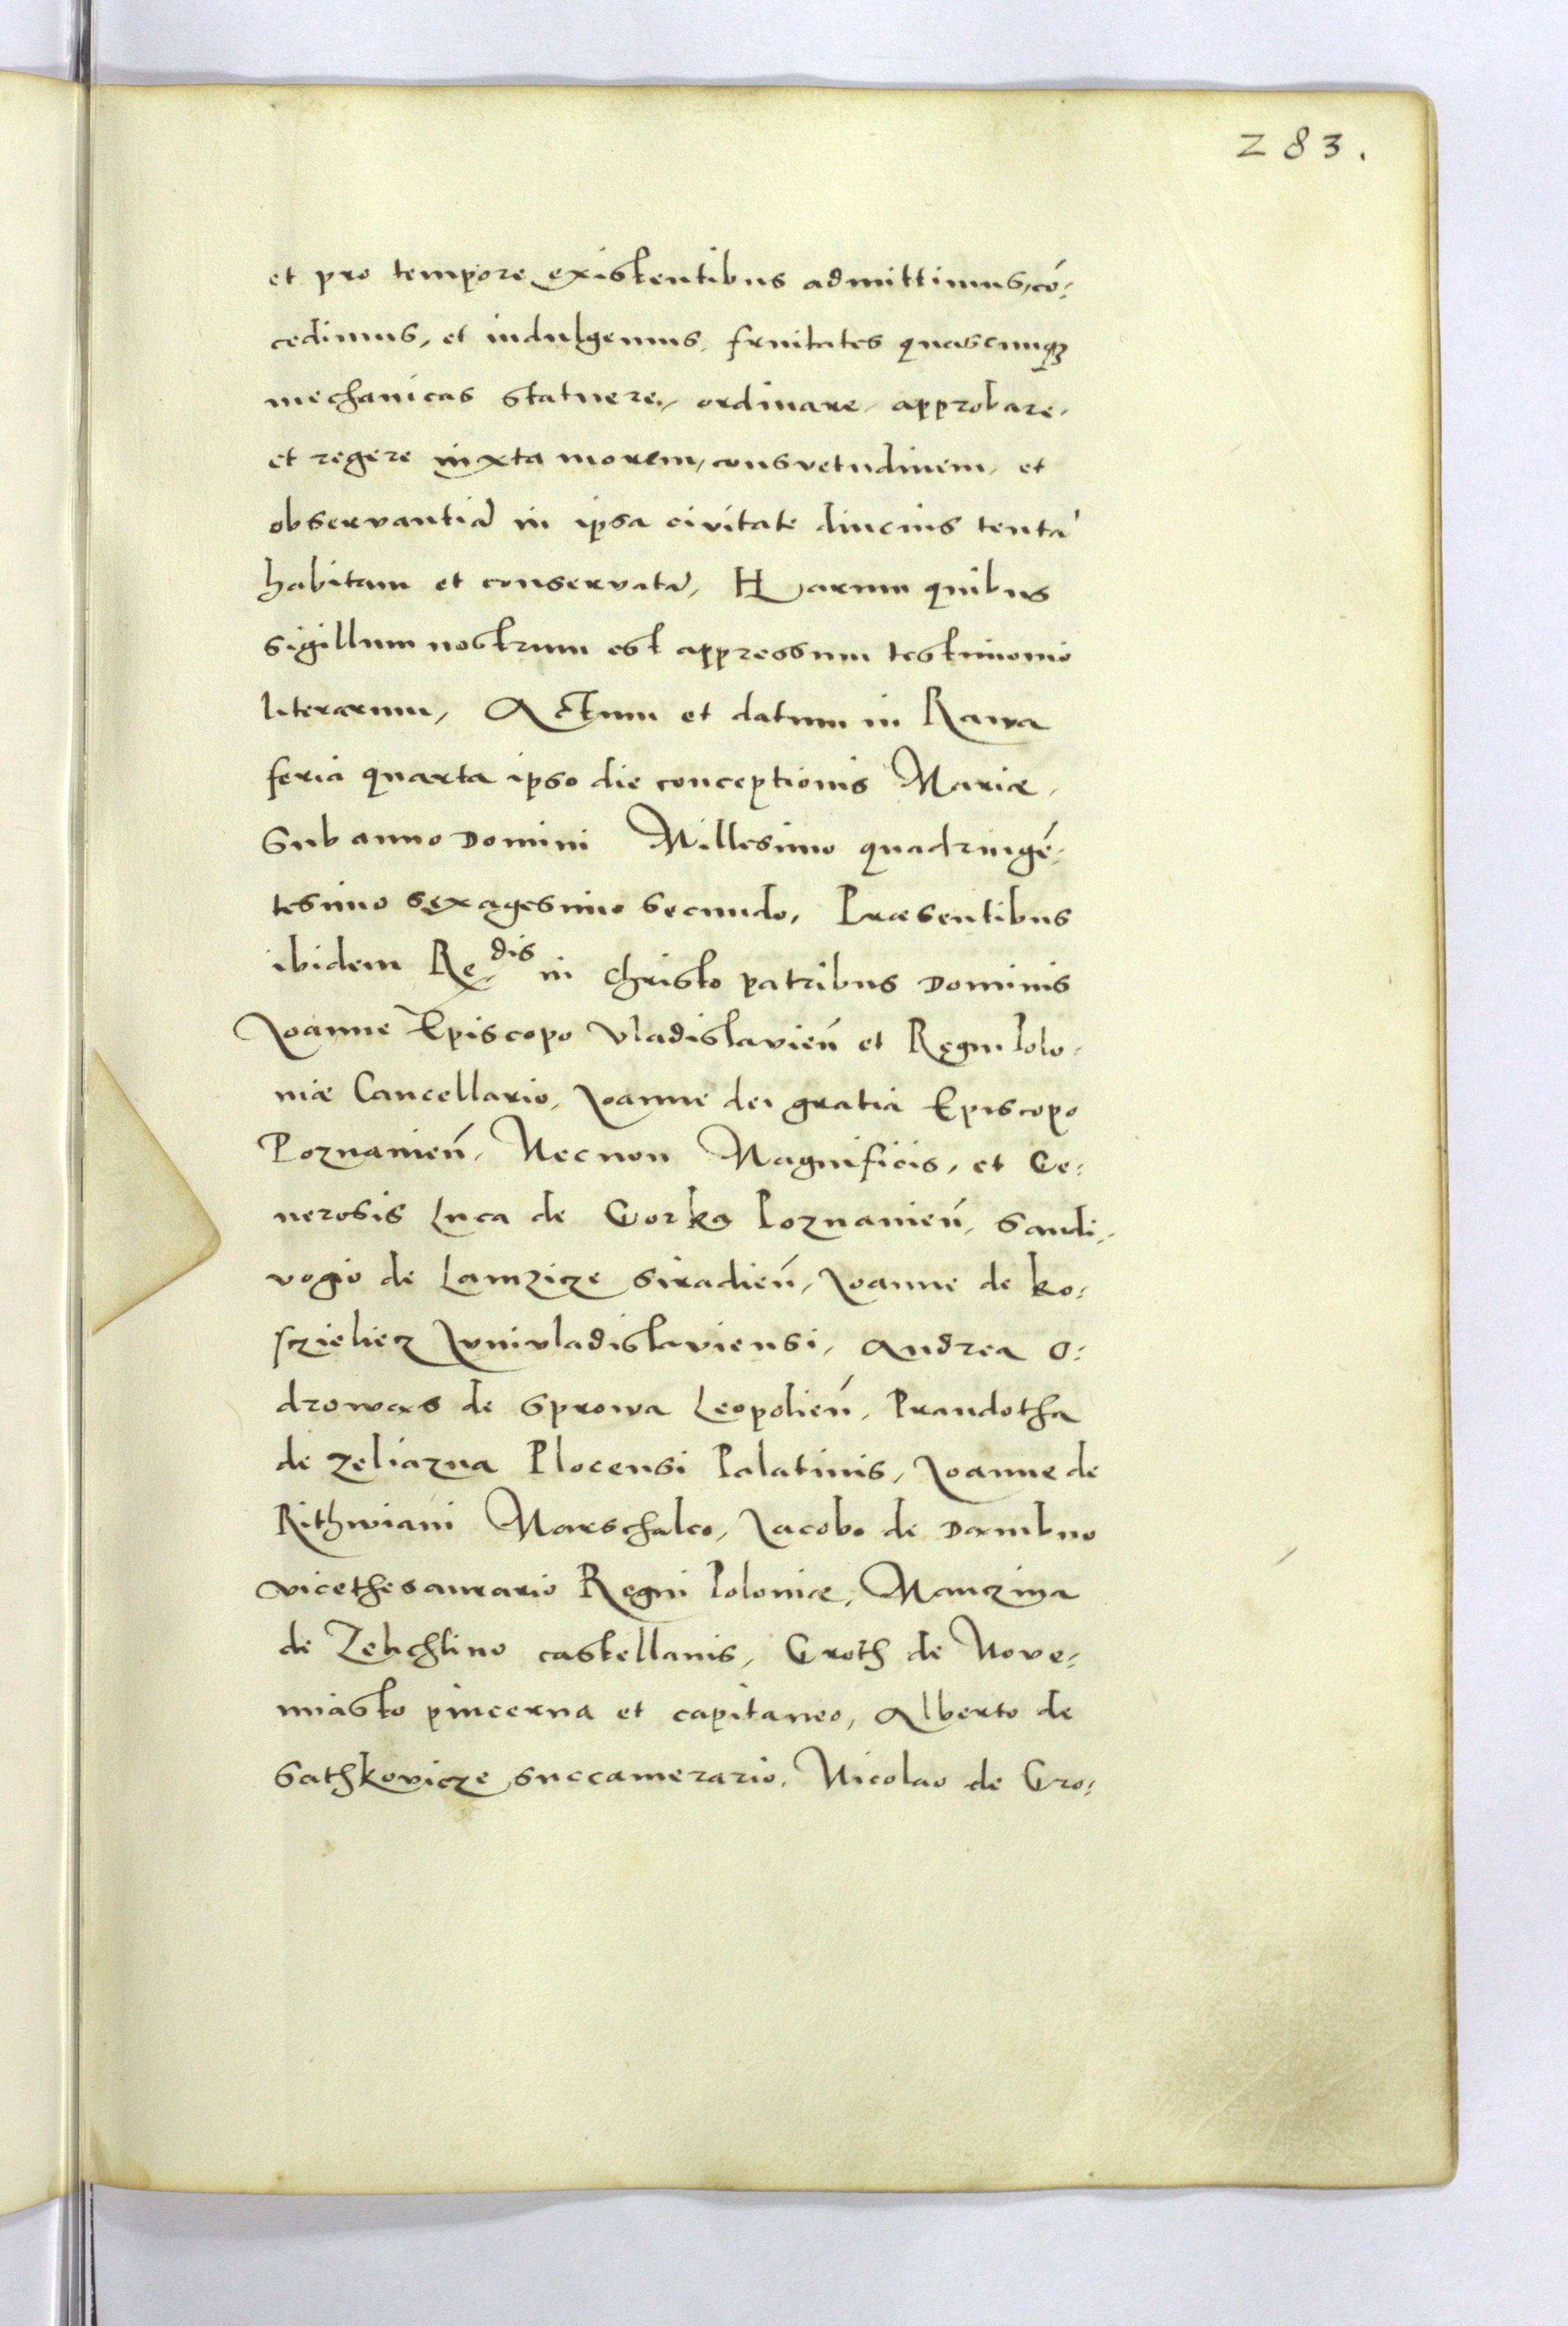 283.
et pro tempore existentibus admittimus, có:
cedimus, et indulgemus, fruitates quascunqꝫ
mechanicas statuere, ordinare, approbare,
et regere iuxta morem, consvetudinem, et
observantiā in ipsa civitate diucius tentā
habitam et conservatā, Harum quibus
sigillum nostrum est appressum testimonio
literarum, Actum et datum in Rawa
feria quarta ipso die conceptionis Mariæ,
Sub anno Domini Millesimo quadringé:
tesimo sexagesimo secundo, Præsentibus
ibidem Re.dis in Christo patribus Dominis
Joanne Episcopo Vladislavień et Regni Polo:
niæ Cancellario, Joanne dei gratia Episcopo
Poznanień, Necnon Magnificis, et Ge:
nerosis Luca de Gorka Poznanień, Sandi:
vogio de Lamzicze Siradień, Joanne de Ko:
sczieliecz Junivladislaviensi, Andrea O:
drowas de Sprowa Leopolień, Prandotha
de Zeliazna Plocensi Palatinis, Joanne de
Rithwiani Marschalco, Jacobo de Dambno
vicethesaurario Regni Poloniæ, Manzina
de Zelichlino castellanis, Groth de Nove:
miasto pincerna et capitaneo, Alberto de
Sathkovicze succamerario, Nicolao de Gro: